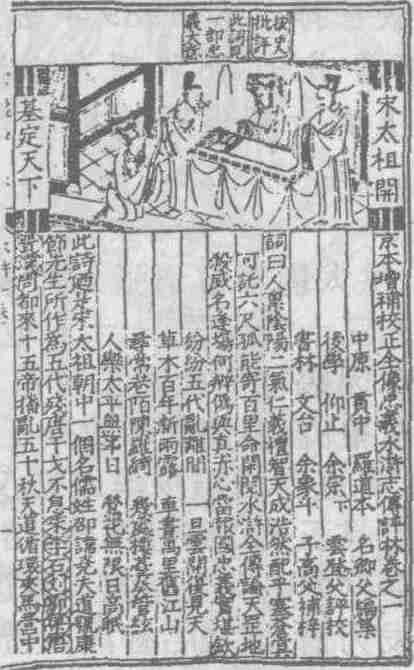 按史
批評
一部忠
宋太祖開
基定天下
京本增補校正全像忠義水滸志傳評林卷之一
中原 貫中 羅道本 名卿父編集
後學 仰止 余宗下 雲登父評校
書林 文台 余象斗 子高父補梓
詞曰人稟陰陽二氣仁義禮智天成浩然配乎塞蒼冥
可託六尺孤能寄百里命開閱水滸全傳論天罡地
煞威名逢場何辨偽與真赤心當報國忠義實堪欽
紛紛五代亂離間 一旦雲開復見天
草木百年新雨露 車書萬里舊江山
尋常巷陌陳羅綺 幾處樓臺奏管絃
人樂太平無事日 鶯花無限日高眠
此詩廼是宋太祖朝中一個名儒姓邵諱堯夫道號康
節先生所作為五代殘唐干戈不息
却來十五帝播亂五十秋天道循環 馬營中